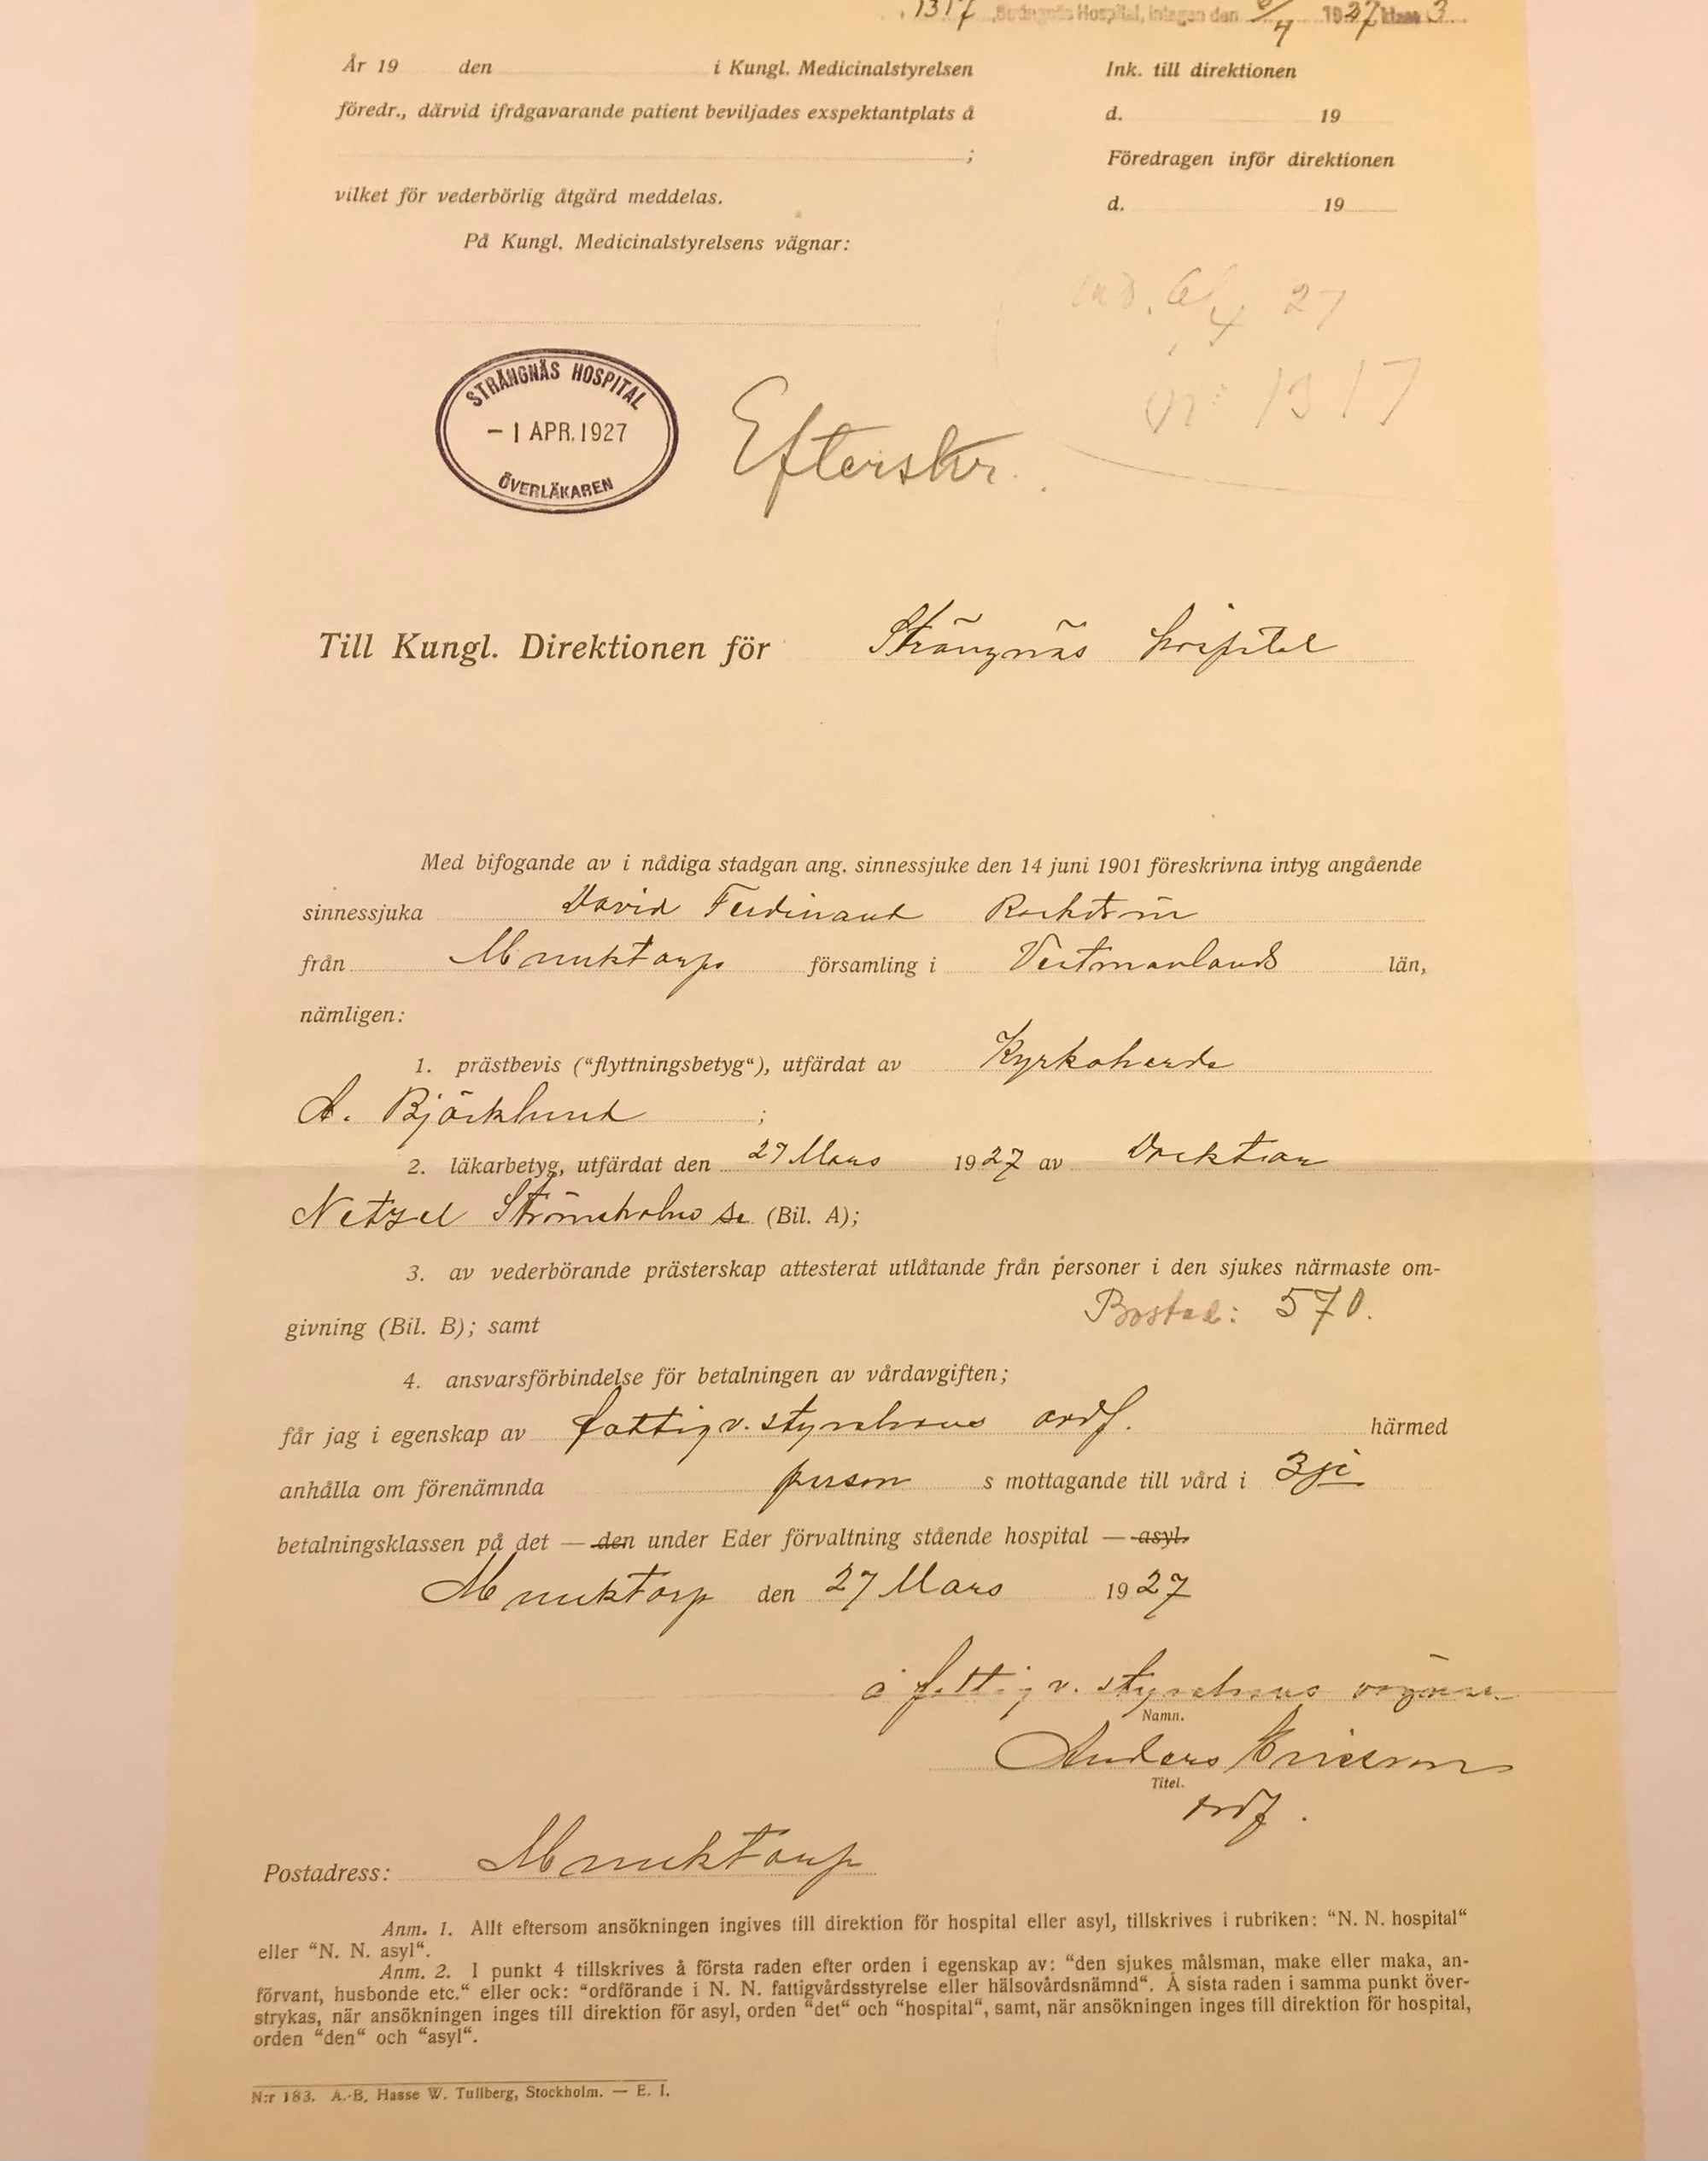 1317 Strängnäs Hospital, intagen den 6/4 1927 klass 3
År 19 den i Kungl. Medicinalstyrelsen
föredr., därvid ifrågavarande patient beviljades exspektantplats å
;
vilket för vederbörlig åtgärd meddelas.
På Kungl. Medicinalstyrelsens vägnar:
Ink. till direktionen
d. 19
Föredragen inför direktionen
d. 19
6/4 27
Nr 1317
STRÄNGNÄS HOSPITAL
- 1 APR. 1927
ÖVERLÄKAREN
Efterskr.
Till Kungl. Direktionen för Strängnäs hospital
Med bifogande av i nådiga stadgan ang. sinnessjuke den 14 juni 1901 föreskrivna intyg angående
sinnessjuka David Ferdinand
från Munktorps församling i Vestmanlands län,
nämligen:
1. prästbevis (“flyttningsbetyg“), utfärdat av Kyrkoherde
A. Björklund ;
2. läkarbetyg, utfärdat den 27 Mars 1927 av Doktor
Netzel Strömsholm (Bil. A);
3. av vederbörande prästerskap attesterat utlåtande från personer i den sjukes närmaste om-
givning (Bil. B); samt
Bostad: 570.
4. ansvarsförbindelse för betalningen av vårdavgiften;
får jag i egenskap av fattigv. styrelsens ordf. härmed
anhålla om förenämnda person s mottagande till vård i 3je
betalningsklassen på det — den under Eder förvaltning stående hospital — asyl.
Munktorp den 27 Mars 1927
å fattigv. styrelsens vägnar
Namn.
Anders Ericson
Titel.
ordf.
Postadress: Munktorp
Anm. 1. Allt eftersom ansökningen ingives till direktion för hospital eller asyl, tillskrives i rubriken: “N. N. hospital“
eller “N. N. asyl“.
Anm. 2. I punkt 4 tillskrives å första raden efter orden i egenskap av: “den sjukes målsman, make eller maka, an-
förvant, husbonde etc.“ eller ock: “ordförande i N. N. fattigvårdsstyrelse eller hälsovårdsnämnd“. Å sista raden i samma punkt över-
strykas, när ansökningen inges till direktion för asyl, orden “det“ och “hospital“, samt, när ansökningen inges till direktion för hospital,
orden “den“ och “asyl“.
N:r 183. A.-B. Hasse W. Tullberg, Stockholm. — E. I.